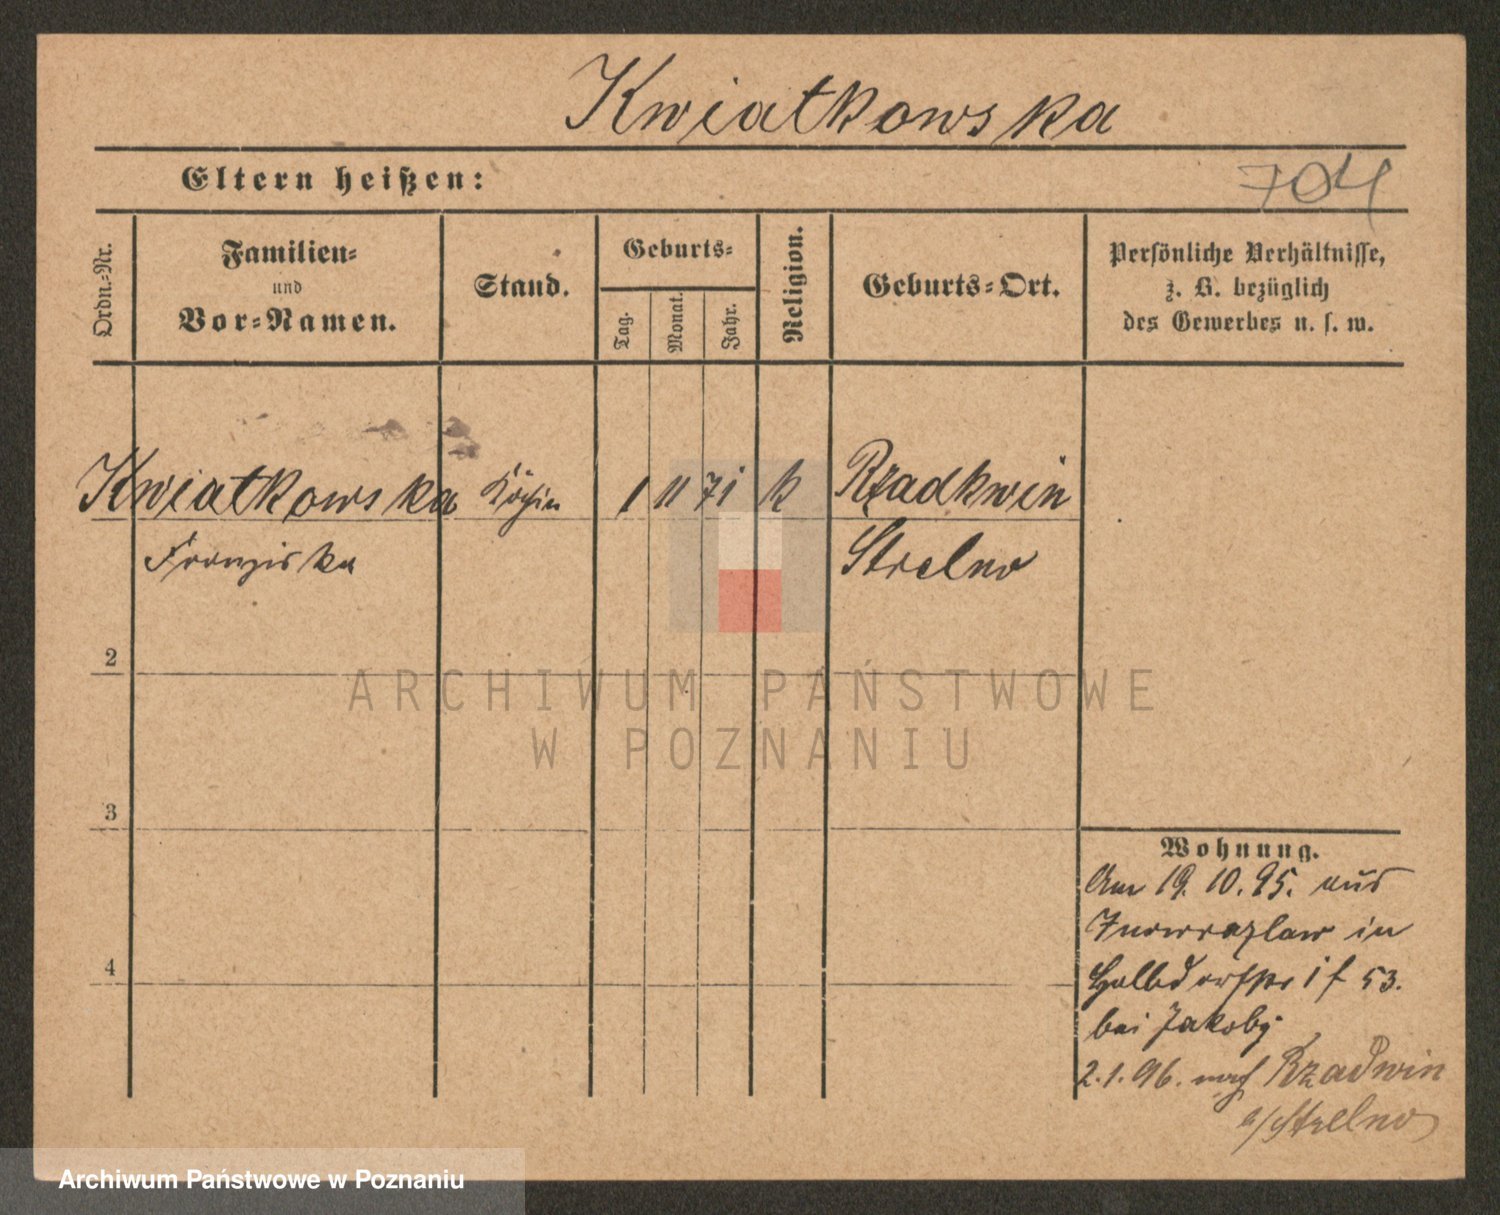 Kwiatkowska
Eltern heißen:
704
Ordn.-Nr.
Familien-
und
Vor-Namen.
Stand.
Geburts-
Tag.
Monat.
Jahr.
Religion.
Geburts-Ort.
Persönliche Verhältnisse,
z. B. bezüglich
des Gewerbes u. s. w.
Kwiatkowska Köchin 1 11 71 k Rzadkwin
Franziska Strelno
2
3
4
ARCHIWUM PAŃSTWOWE
W POZNANIU
Wohnung.
Am 19. 10. 95. aus
Inowrazlaw in
Halbdorfstr 53.
bei Jakoby
2. 1. 96. nach Rzadwin
Strelno
Archiwum Państwowe w Poznaniu